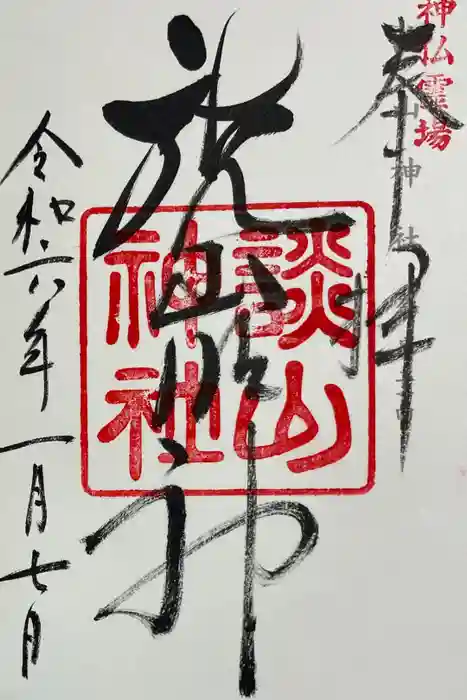 神仏霊場
奉拝
談山明神
談山
神社
令和六年一月七日